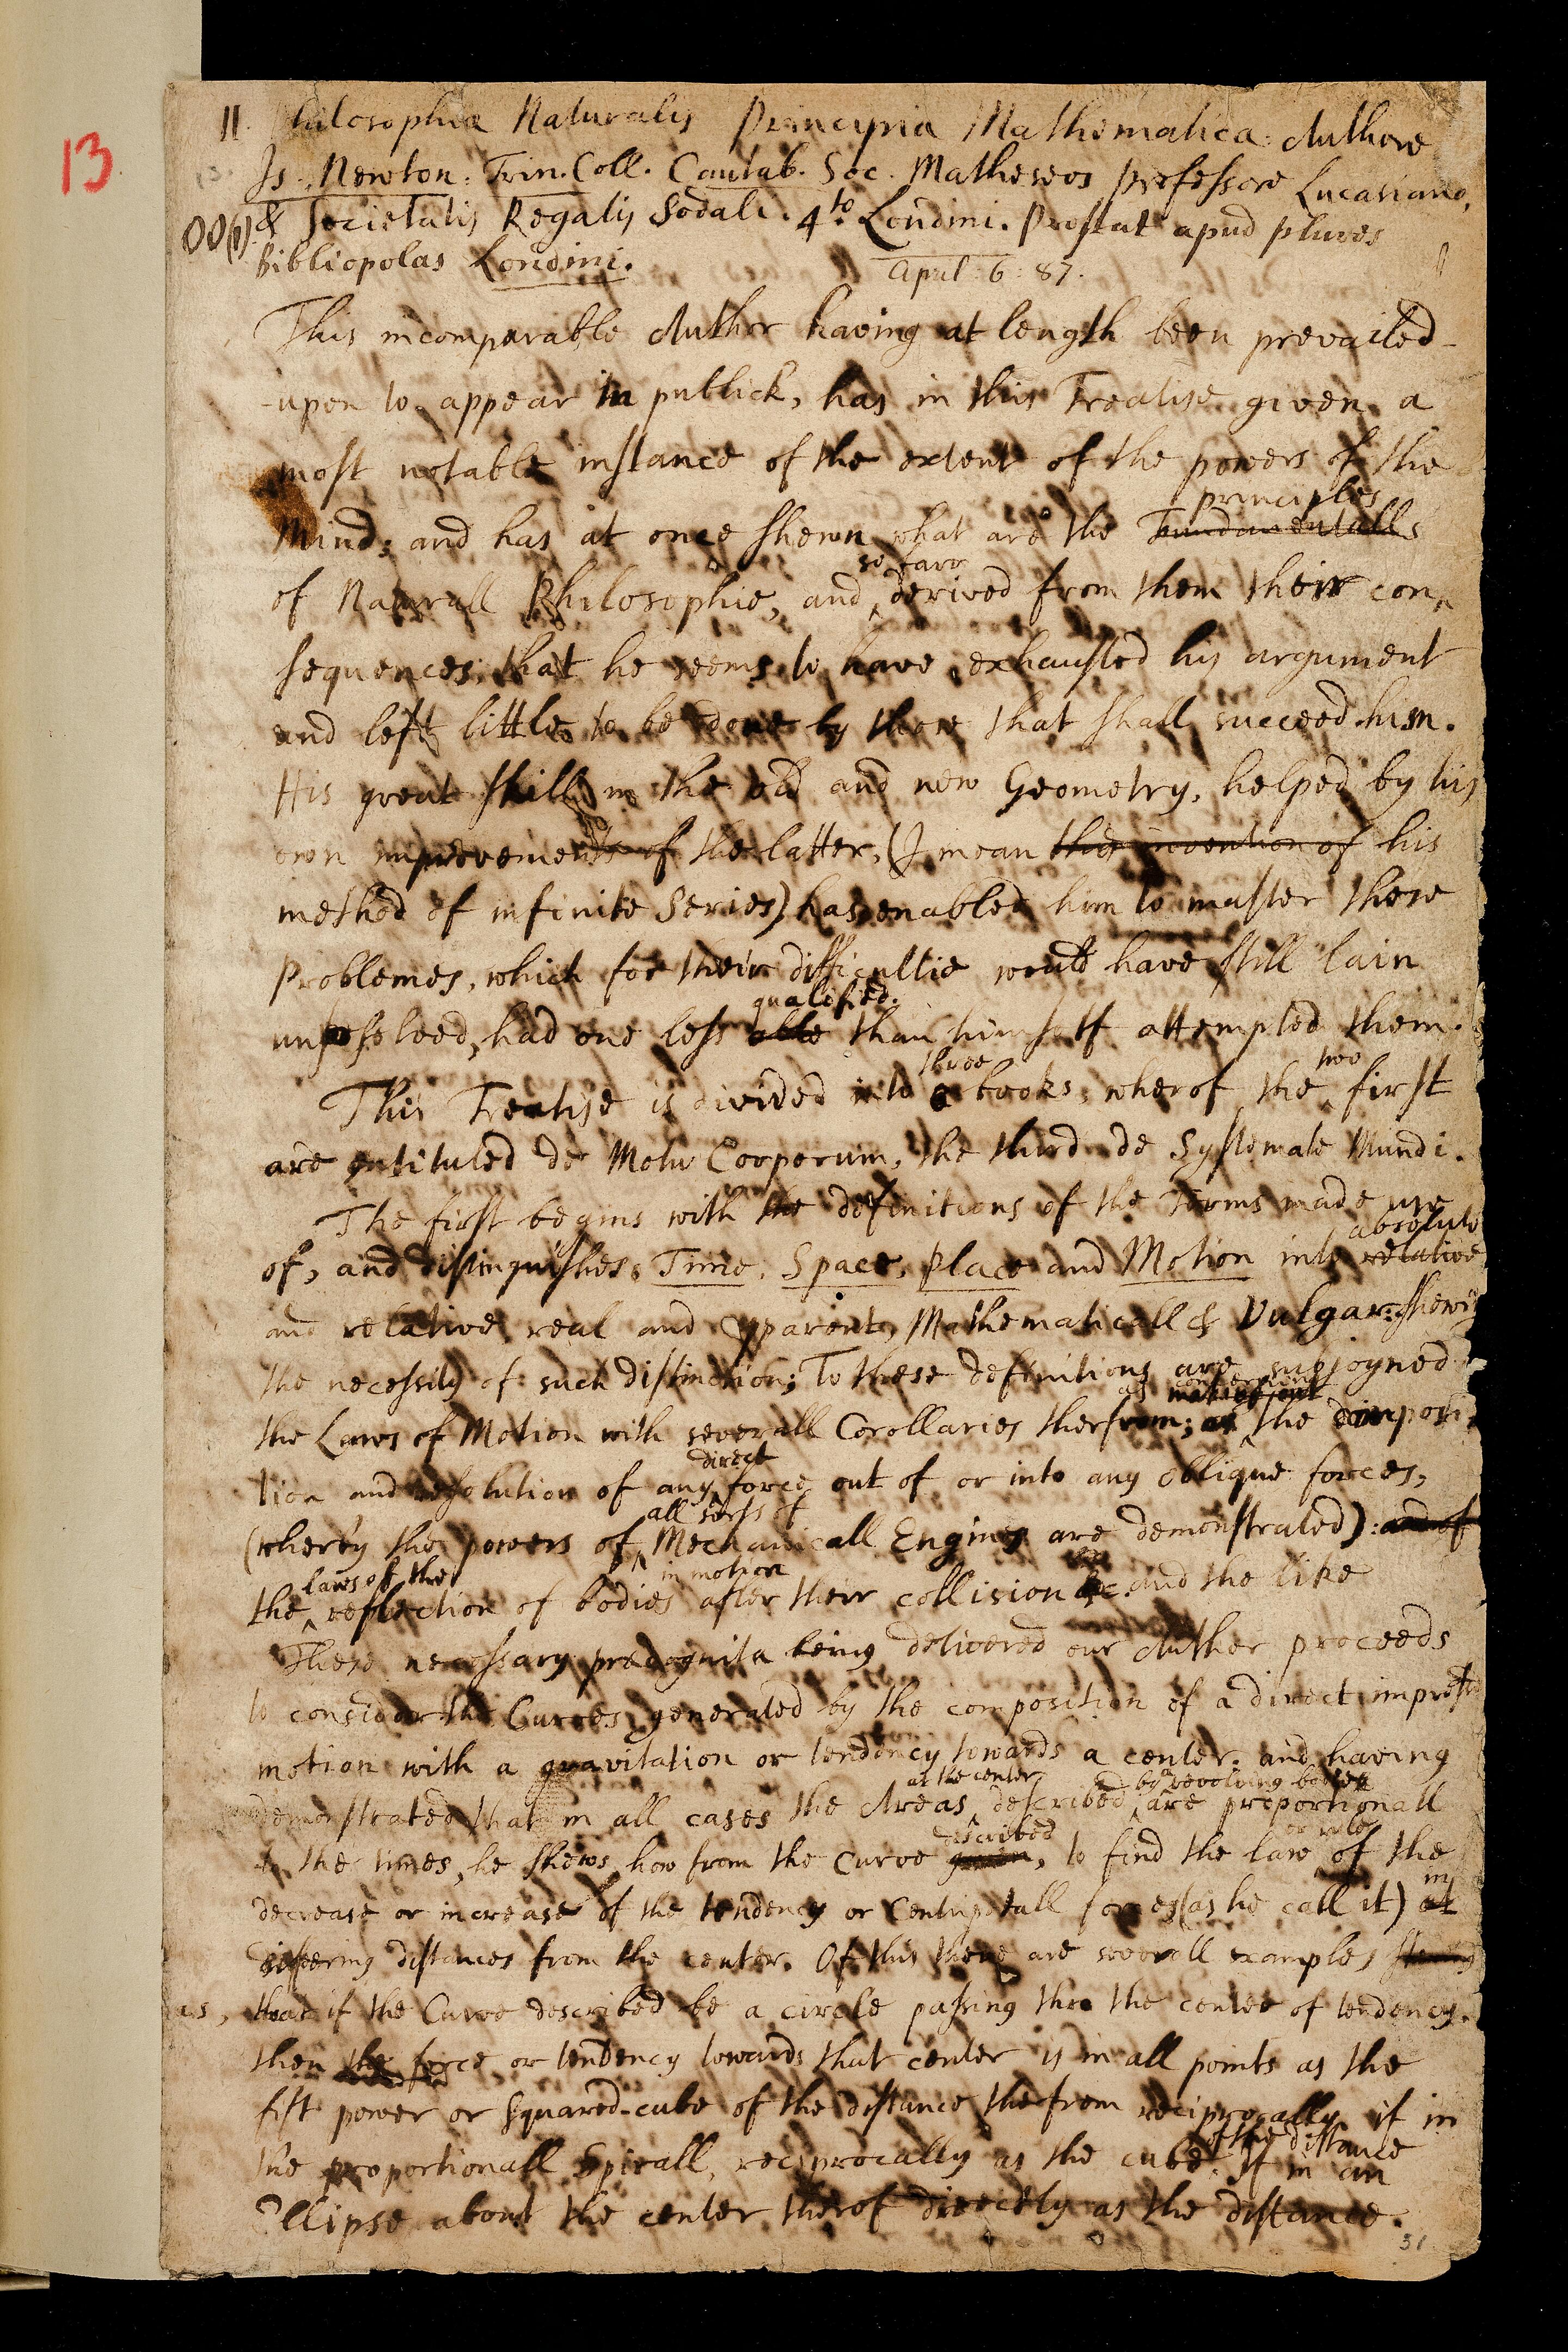 13
11. Philosophiæ Naturalis Principia Mathematica: Authore
13.
Is. Newton: Trin. Coll. Cantab. Soc. Matheseos Professore Lucasiano,
OO(1). & Societatis Regalis Sodali. 4to. Londini. Prostat apud plures
Bibliopolas Londini. April: 6: 87.
This incomparable Author having at length been prevailed
upon to appear in publick, has in this Treatise given a
most notable instance of the extent of the powers of the
principles
Mind; and has at once shewn what are the Fundamentalls
so farr
of Naturall Philosophie, and derived from them their con
sequences, that he seems to have exhausted his argument
and left little to be done by those that shall succeed him.
His great skill in the old and new Geometry, helped by his
own improvements of the latter, (I mean the invention of his
method of infinite Series) has enabled him to master those
Problemes, which for their difficultie would have still lain
qualified.
unresolved, had one less able than himself attempted them.
three two
This Treatise is divided into books, wherof the first
are entituled de Motu Corporum, the third de Systemate Mundi.
The first begins with the definitions of the Terms made use
absolute
of, and distinguishes Time, Space, Place and Motion into relative
and relative, real and apparent, Mathematicall & Vulgar: shewing
the necessity of such distinction; To these definitions are subjoyned
as concerning
the Laws of Motion with severall Corollaries therfrom; as the composi
direct
tion and resolution of any force out of or into any oblique forces,
all sorts of
(wherby the powers of Mechanicall Engines are demonstrated): and of
laws of the in motion
the reflection of bodies after their collision &c. and the like
These necessary præcognita being delivered our Author proceeds
to consider the Curves generated by the composition of a direct imprest
motion with a gravitation or tendency towards a center. and having
at the center by revolving bodies
demonstrated that in all cases the Areas described are proportionall
described or rule
to the times, he shews how from the Curve given, to find the law of the
in
decrease or increase of the tendency or Centripetall forces (as he call it) at
differing distances from the center. Of this there are severall examples
as, that if the Curve described be a circle passing thro the center of tendency.
then the force or tendency towards that center is in all points as the
fift power or squared-cube of the distance therfrom reciprocally. if in
of the distance
the proportionall Spirall, reciprocally as the cube. If in an
Ellipse about the center therof directly as the distance.
31